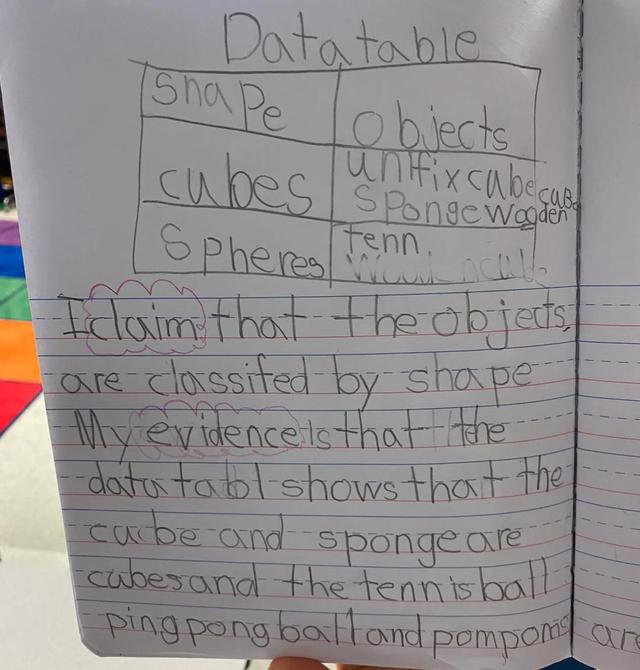 Data table
shape
objects
cubes
unifix cube
sponge wooden cube
spheres
tenn
I claim that the objects
are classifed by shape
My evidence is that the
data tabl shows that the
cube and sponge are
cubes and the tennis ball
ping pong ball and pompoms are